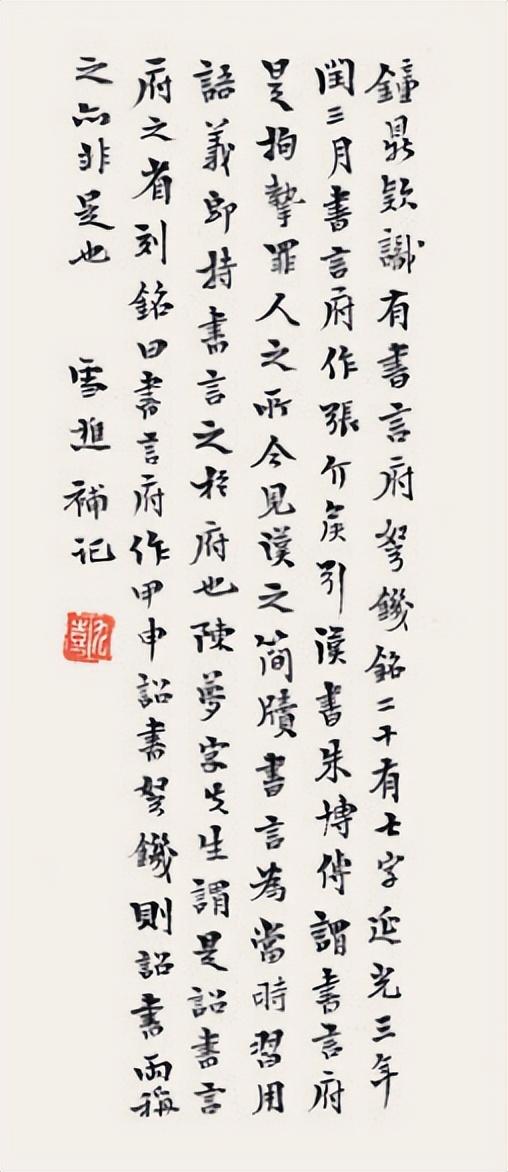 鐘鼎欵識有書言府弩鐖銘二十有七字延光三年
閏三月書言府作張介矦引漢書朱博傳謂書言府
是拘摯罪人之所今見漢之簡牘書言為當時習用
語義即持書言之於府也陳夢家先生謂是詔書言
府之省刻銘曰書言府作甲申詔書弩鐖則詔書兩稱
之亦非是也
雪堪補記